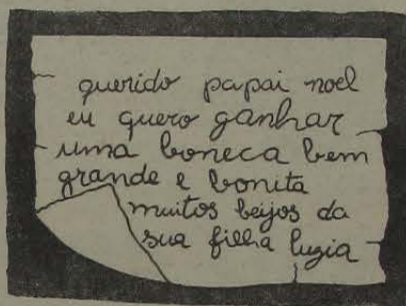 querido papai noel
eu quero ganhar
uma boneca bem
grande e bonita
muitos beijos da
sua filha luzia